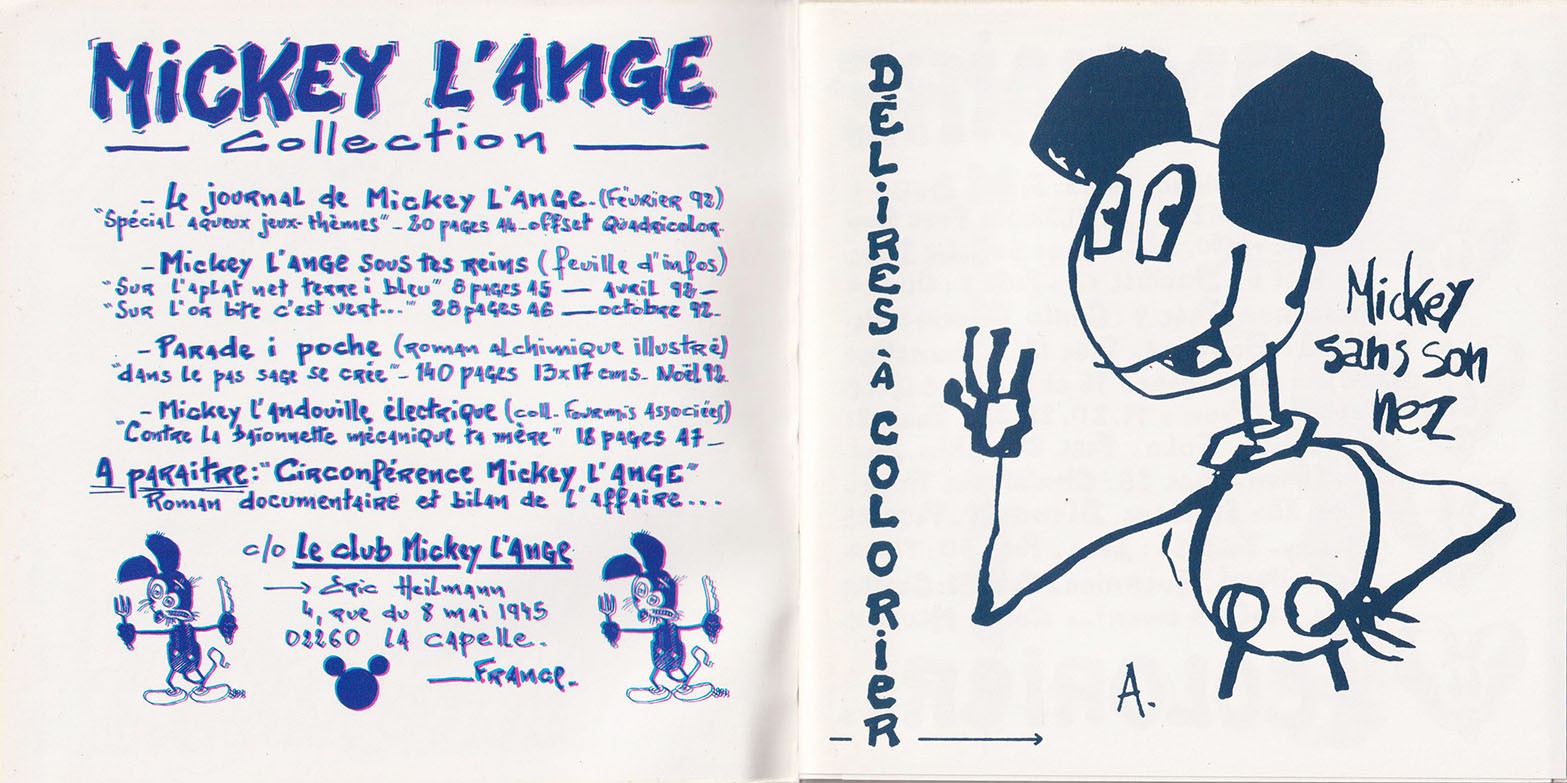 MiCKEY L'ANGE
collection
- Le journal de Mickey L'Ange. (Février 92)
"Spécial aqueux jeux-thèmes" - 20 pages A4 - offset Quadricolor.
- Mickey L'ange sous tes reins (feuille d'infos)
"Sur l'aplat net terre i bleu" 8 pages A5 — avril 92 -
"Sur l'or bite c'est vert..." 28 pages A6 — octobre 92 -
- Parade i poche (roman alchimique illustré)
"dans le pas sage se crée" - 140 pages 13x17 cms - Noël 92.
- Mickey l'andouille électrique (coll. Fourmis Associées)
"Contre la baïonnette mécanique ta mère" 18 pages A7 -
A paraitre: "Circonférence Mickey L'Ange"
Roman documentaire et bilan de l'affaire...
c/o Le club Mickey L'Ange
→ Eric Heilmann
4, rue du 8 mai 1945
02260 La Capelle.
— France.
DÉLiRES À COLORiER
Mickey
sans son
nez
A.